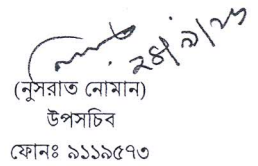 ২৪/৯/২৩
(নুসরাত নোমান)
উপসচিব
ফোনঃ ৯১১৯৫৭৩